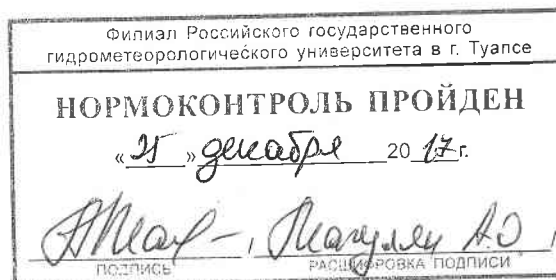 Филиал Российского государственного
гидрометеорологического университета в г. Туапсе
НОРМОКОНТРОЛЬ ПРОЙДЕН
«25» декабря 2017г.
А.О.
ПОДПИСЬ РАСШИФРОВКА ПОДПИСИ